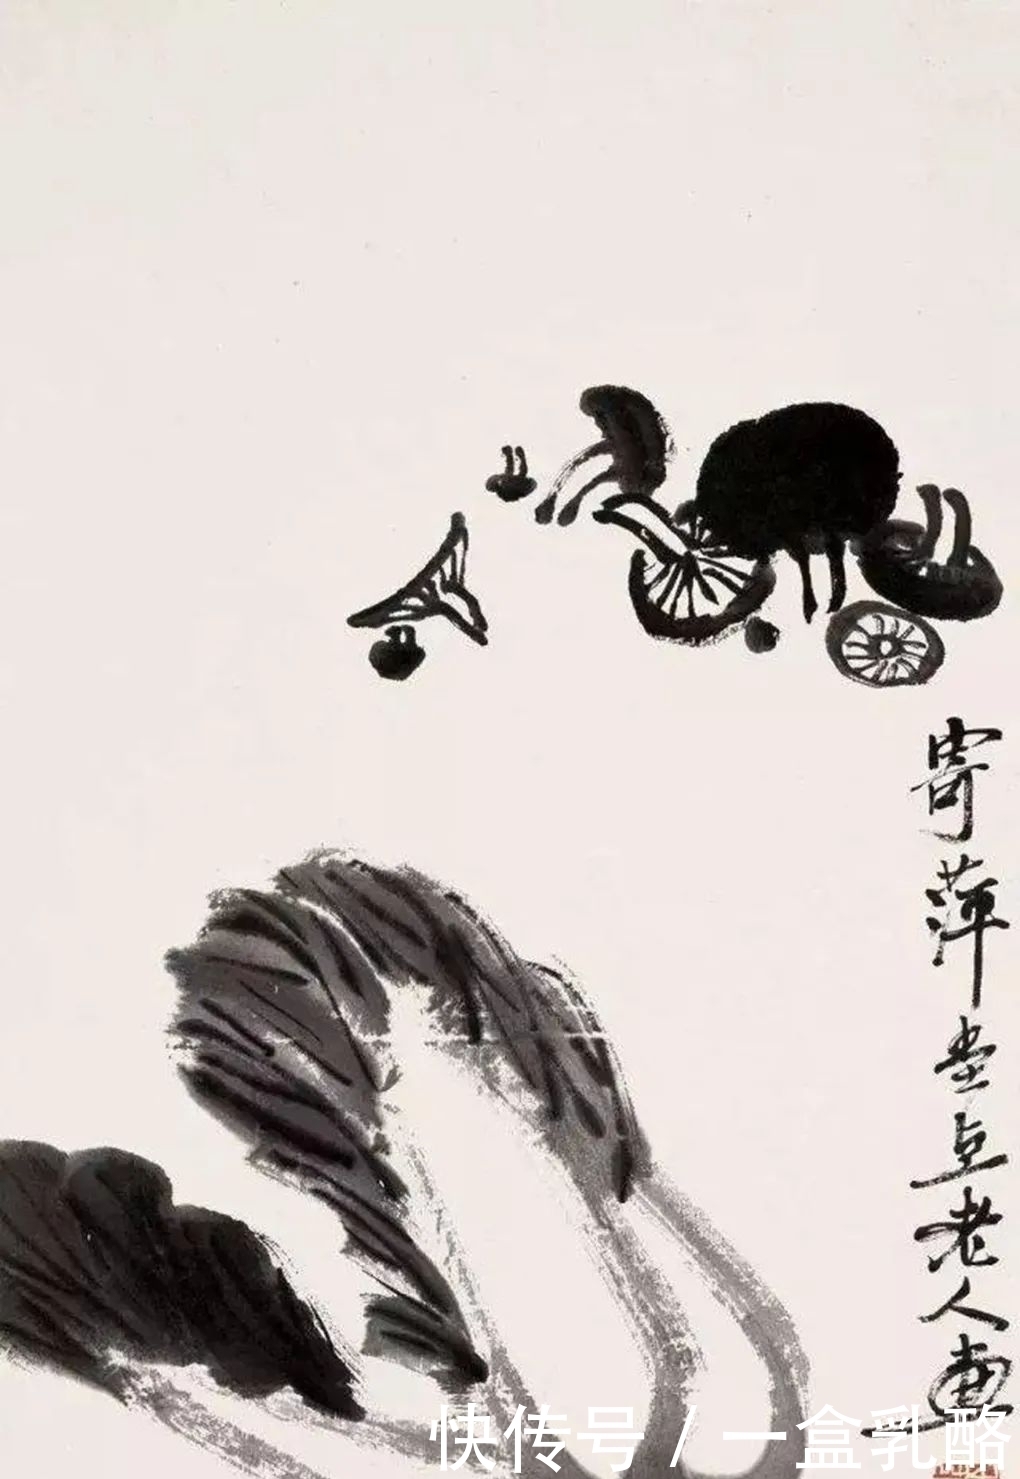 寄萍堂上老人画
快传号 / 一盒乳酪